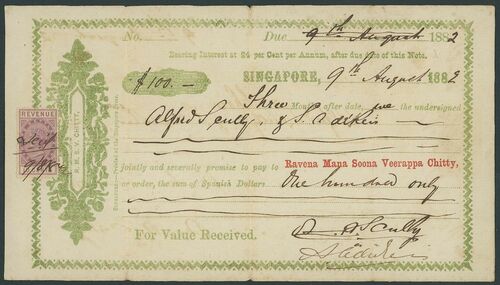 No. Due 9th August 1882
Bearing Interest at 24 per Cent per Annum, after due date of this Note.
$100.— SINGAPORE, 9th August 1882
Three Months after date, we the undersigned
Alfred Scully, & S. Adkein
jointly and severally promise to pay to Ravena Mapa Soona Veerappa Chitty,
or order, the sum of Spanish Dollars One hundred only
For Value Received.
A. Scully
R. M. S. V. CHITTY,
REVENUE
9/8/82